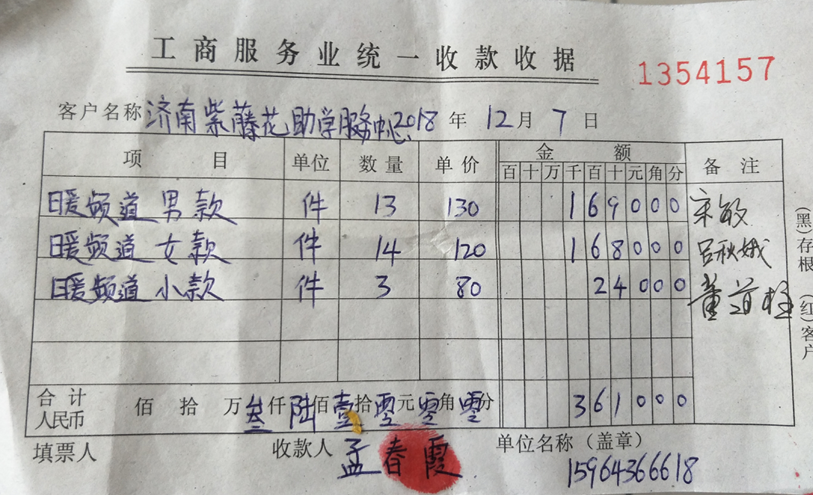 工商服务业统一收款收据
1354157
客户名称 济南紫藤花助学服务中心 2018 年 12 月 7 日
项 目 单位 数量 单价 金 额 备注
百 十 万 千 百 十 元 角 分
暖频道 男款 件 13 130 1 6 9 0 0 0 宋敏
暖频道 女款 件 14 120 1 6 8 0 0 0 吕秋娥
暖频道 小款 件 3 80 2 4 0 0 0 董道柱
合计 人民币 佰 拾 万 叁 仟 陆 佰 壹 拾 零 元 零 角 零 分 3 6 1 0 0 0
填票人 收款人 孟春霞 单位名称（盖章）
15964366618
（黑）存根 （红）客户